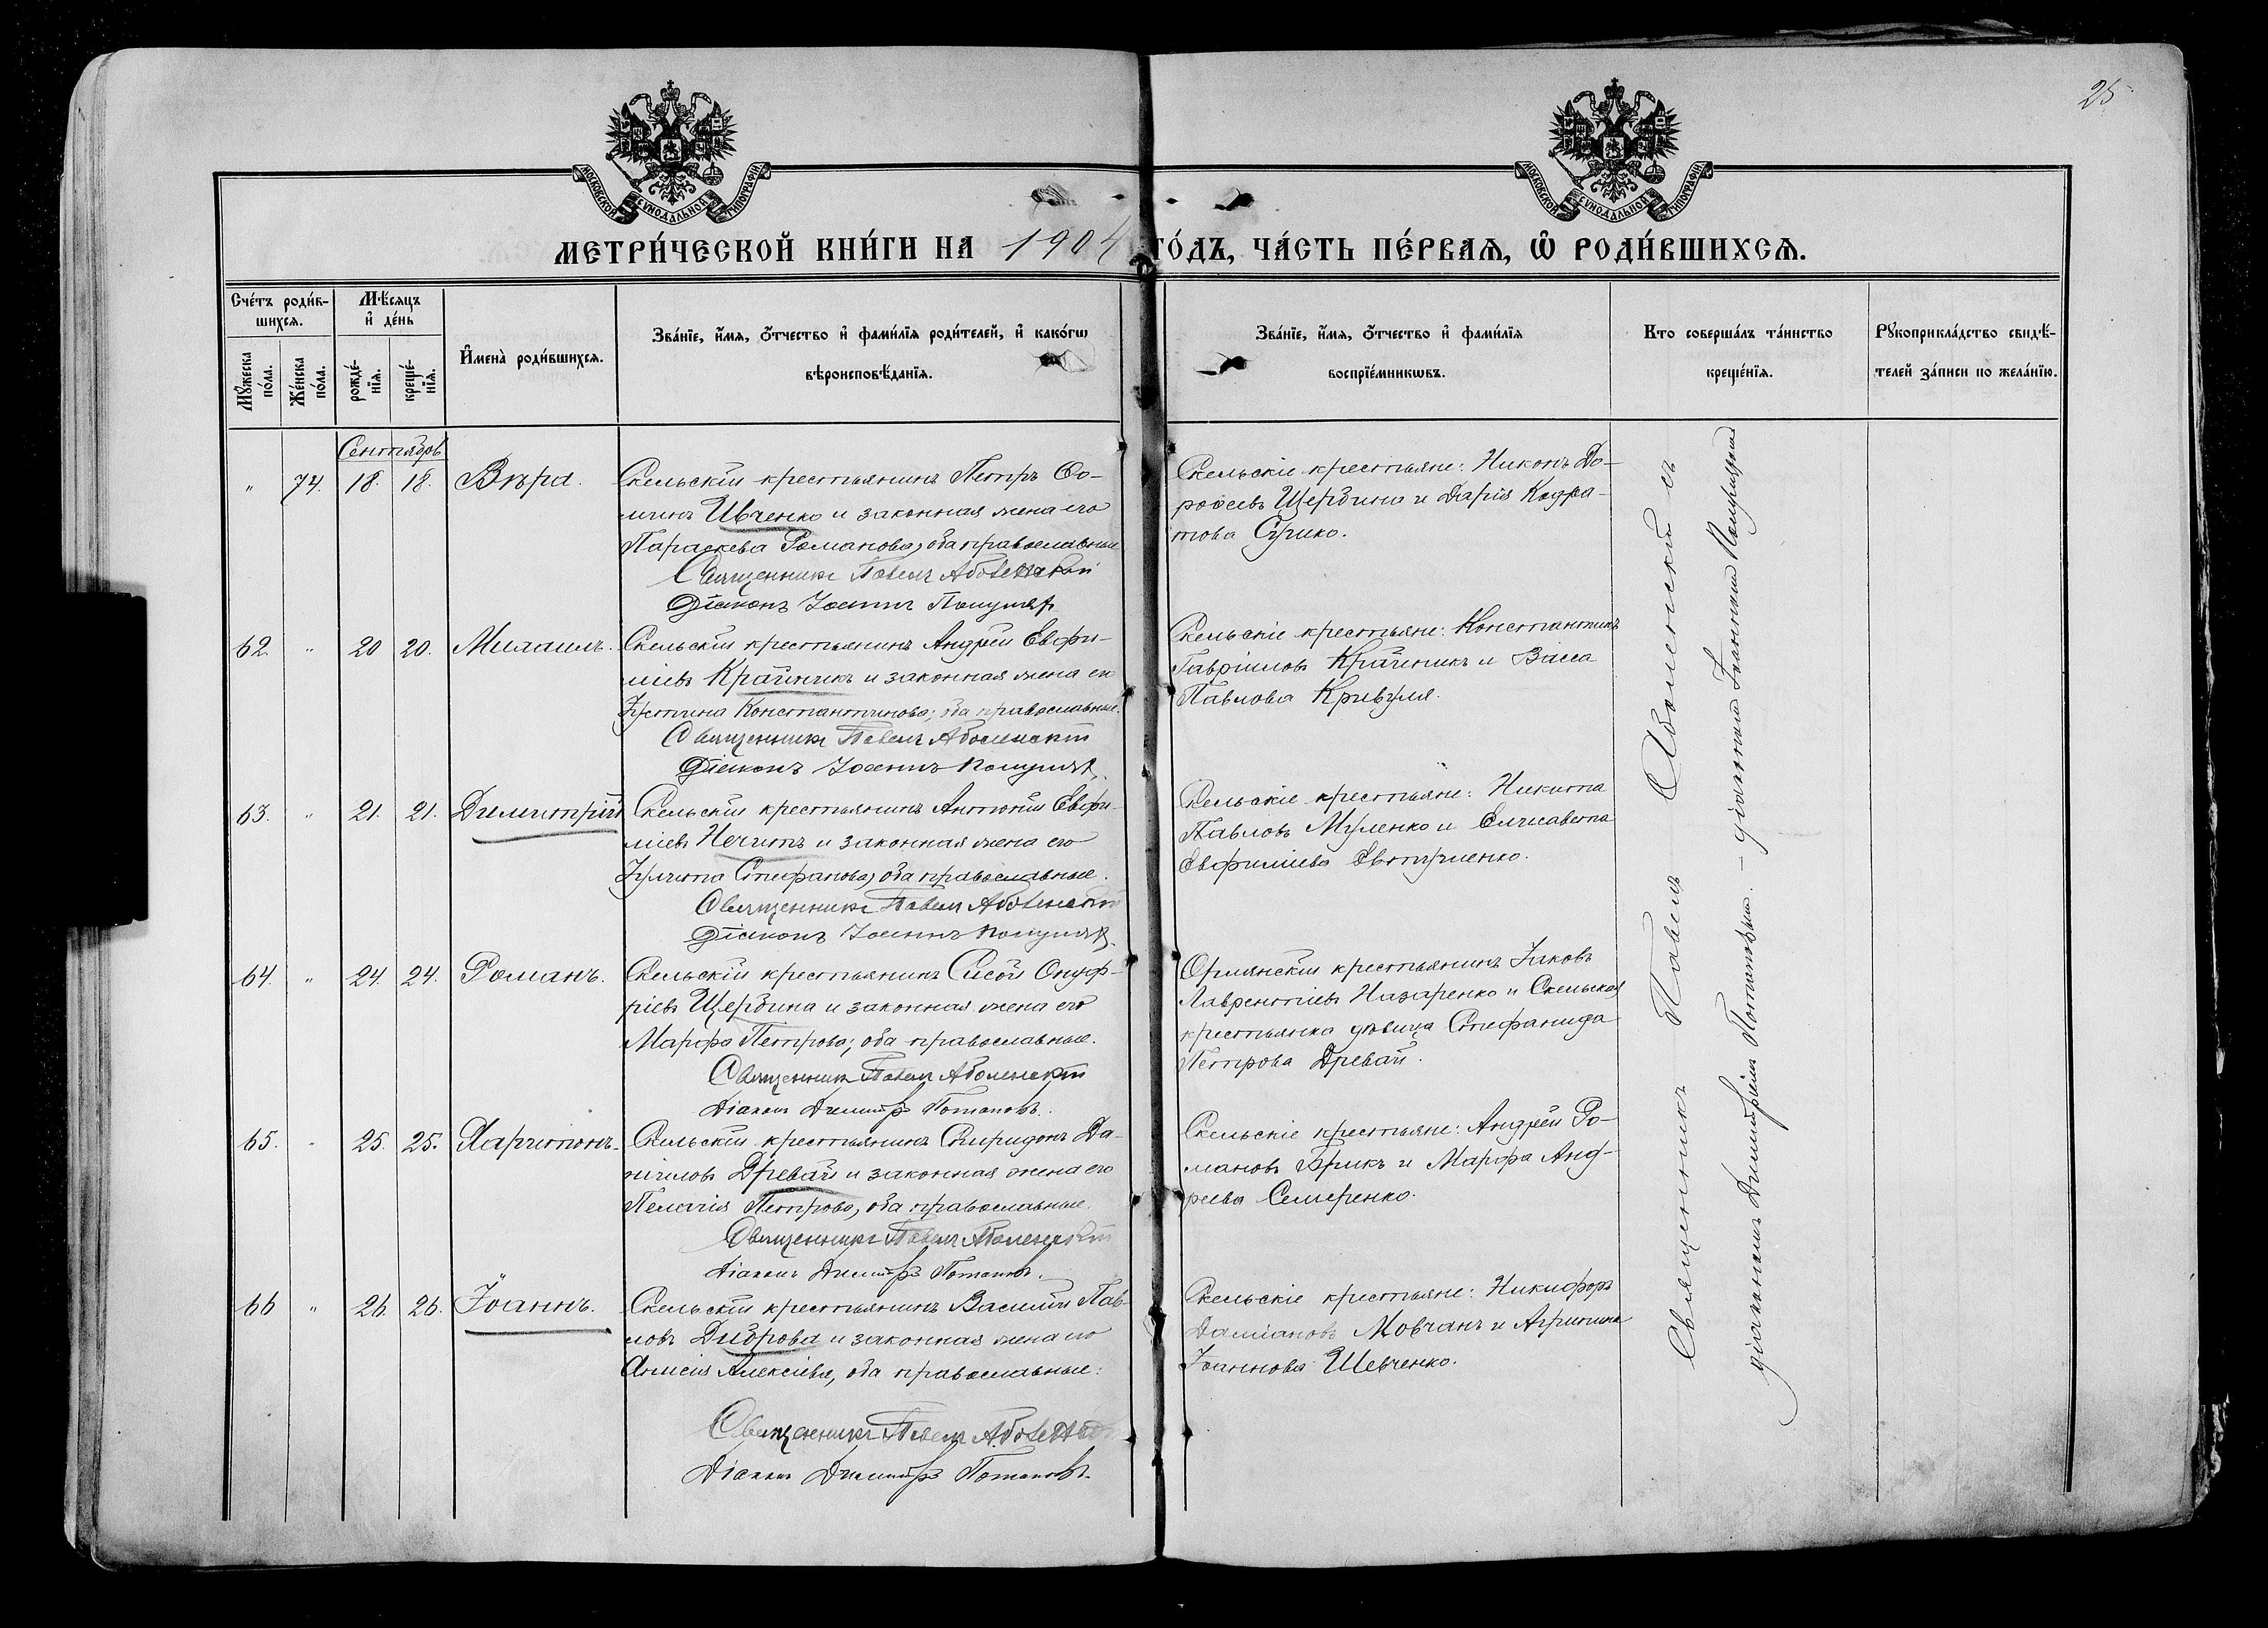 25
МОСКОВСКОЙ СѴНОДАЛЬНОЙ ТИПОГРАФІИ.
МОСКОВСКОЙ СѴНОДАЛЬНОЙ ТИПОГРАФІИ.
МЕТРИ́ЧЕСКОЙ КНИ́ГИ НА 1904 ГО́ДЪ, ЧА́СТЬ ПЕ́РВАЯ, Ѡ҆ РОДИ́ВШИХСЯ.
Сче́тъ роди́в-
шихся.
Мꙋжеска по́ла.
Же́нска по́ла.
Мѣ́сяцъ
и҆ де́нь
рожде́-
нїя.
креще́-
нїя.
И҆мена̀ роди́вшихся.
Зва́нїе, и҆́мя, ѻ҆́тчество и҆ фами́лїя роди́телей, и҆ како́гѡ
вѣроисповѣ́данїя.
Зва́нїе, и҆́мя, ѻ҆́тчество и҆ фами́лїя
воспрїе́мникѡвъ.
Кто соверша́лъ та́инство
креще́нїя.
Рꙋкоприкла́дство свидѣ́-
телей за́писи по жела́нїю.
Сентябрь
" 74. 18. 18. Вѣра.
Скельскій крестьянинъ Петръ Ѳо-
минъ Ивченко и законная жена его
Параскева Романова, оба православные
Священникъ Павелъ Аболенскій
Діаконъ Іоаннъ
Скельскіе крестьяне: Никонъ До-
роѳеевъ Щербина и Дарія Кодра-
това Сірико.
62. " 20 20. Михаилъ.
Скельскій крестьянинъ Андрей Евфи-
міевъ Крайникъ и законная жена его
Іустина Константинова; оба православные.
Священникъ Павелъ Аболенскій
Діаконъ Іоаннъ
Скельскіе крестьяне: Константинъ
Гавріиловъ Крайникъ и Васса
Павлова Кривуля.
63. " 21. 21. Димитрій
Скельскій крестьянинъ Антоній Евфи-
міевъ Нечитъ и законная жена его
Іулита Стефанова, оба православные.
Священникъ Павелъ Аболенскій
Діаконъ Іоаннъ
Скельскіе крестьяне: Никита
Павловъ Муленко и Елисавета
Евфиміева Евтушенко.
64. " 24. 24. Романъ.
Скельскій крестьянинъ Сисой Онуф-
ріевъ Щербина и законная жена его
Марфа Петрова; оба православные.
Священникъ Павелъ Аболенскій
Діаконъ Димитрій Потаповъ.
крестьянинъ Іаковъ
Лаврентіевъ Назаренко и Скельская
крестьянка дѣвица Стефанида
Петрова Древай.
65. " 25. 25. Харитонъ.
Скельскій крестьянинъ Спиридонъ Да-
ніиловъ Древай и законная жена его
Пелагія Петрова, оба православные.
Священникъ Павелъ Аболенскій
Діаконъ Димитрій Потаповъ.
Скельскіе крестьяне: Андрей Ро-
мановъ Брикъ и Марфа Анд-
реева Семеренко.
66 " 26. 26. Іоаннъ.
Скельскій крестьянинъ Василій Пав-
ловъ Диброва и законная жена его
Анисія Алексіева, оба православные:
Священникъ Павелъ Аболенскій
Діаконъ Димитрій Потаповъ.
Скельскіе крестьяне: Никифоръ
Даміановъ Мовчанъ и Агрипина
Іоаннова Шевченко.
Священникъ Павелъ Аболенскій съ
діакономъ Димитріемъ Потаповымъ. – діакономъ Іоанномъ